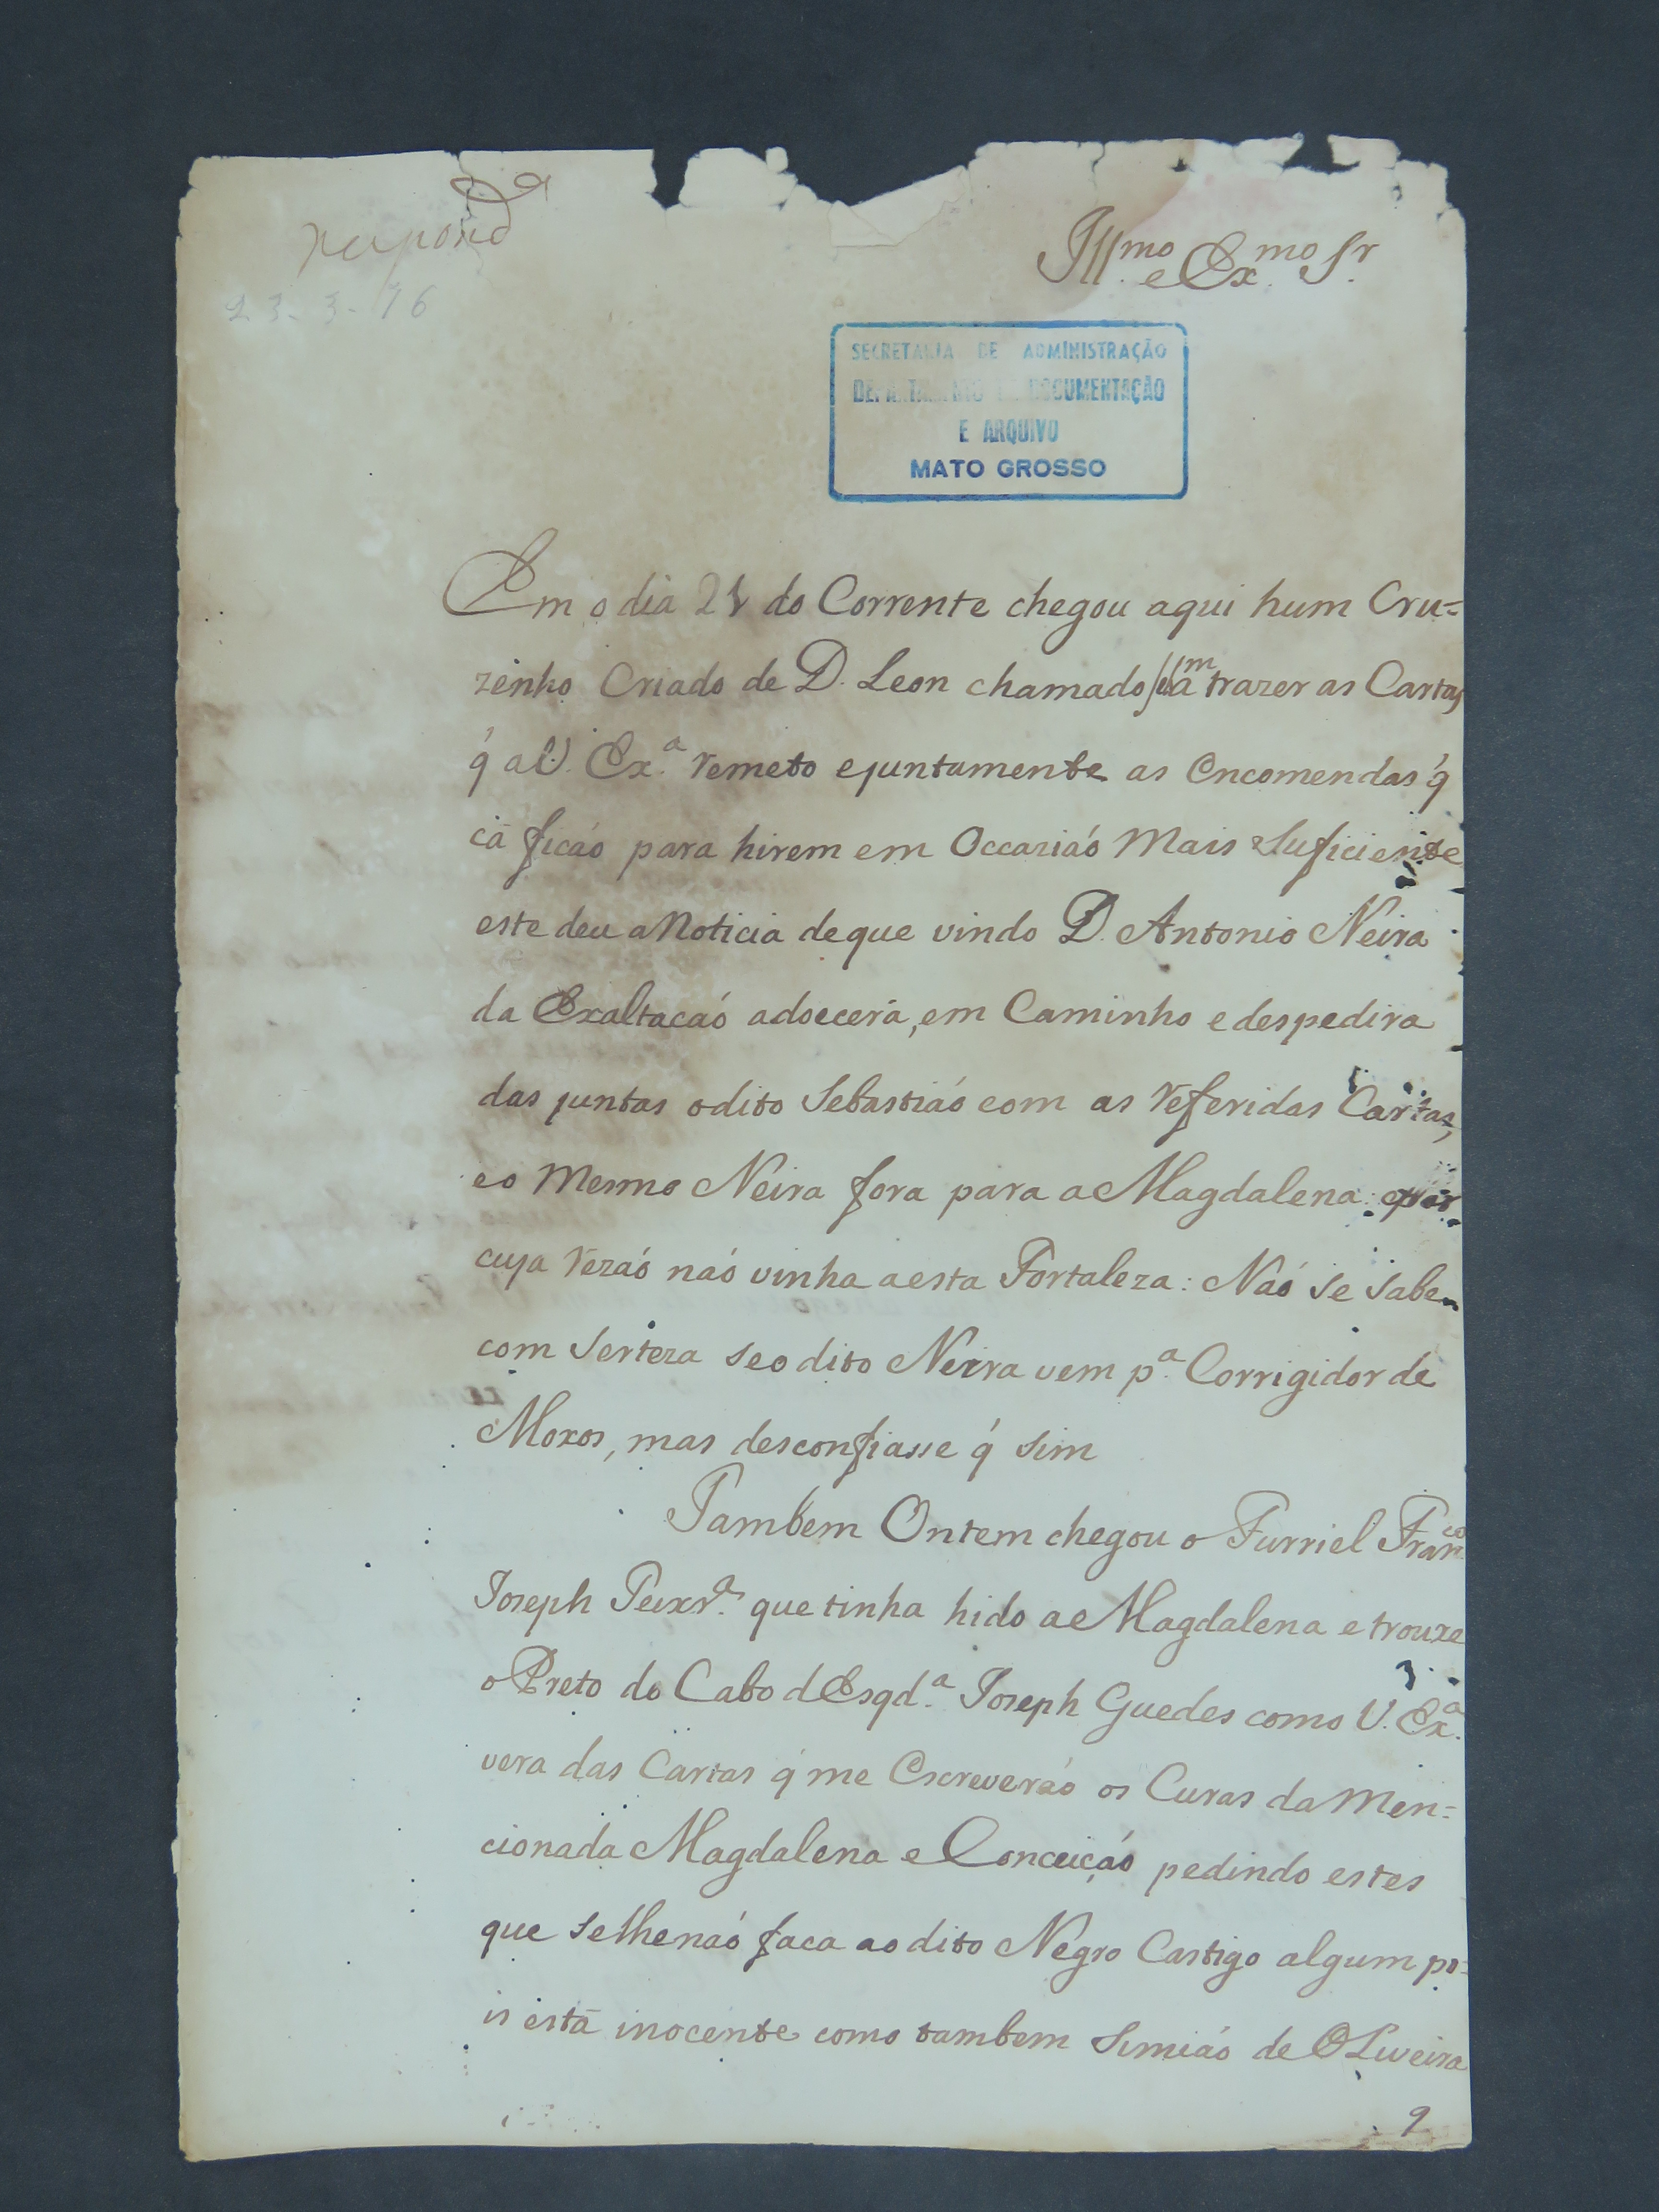 respond.ª
23-3-76
Ill.mo e Ex.mo Sr.
SECRETARIA DE ADMINISTRAÇÃO
DEPARTAMENTO DE DOCUMENTAÇÃO
E ARQUIVO
MATO GROSSO
Em o dia 21 do Corrente chegou aqui hum Cru=
zenho Criado de D. Leon chamado trazer as Cartas
q̃ a V. Ex.ª remeto ejuntamente as Encomendas q̃
cá ficáo para hirem em Occaziáo Mais Suficiente
este deu a Noticia deque vindo D. Antonio Neira
da Exaltacáo adoecera, em Caminho e despedira
das juntas odito Sebastiáo com as referidas Cartas,
eo Mesmo Neira fora para a Magdalena: epor
cuja rezáo náo vinha aesta Fortaleza: Náo se sabe
com Serteza seo dito Neira vem p.ª Corrigidor de
Moxos, mas desconfiasse q̃ sim
Tambem Ontem chegou o Furriel Fran.co
Joseph Teixr.ª que tinha hido a Magdalena e trouxe
o Preto do Cabo dEsqd.ª Joseph Guedes como V. Ex.ª
vera das Cartas q̃ me Escreveráo os Curas da Men=
cionada Magdalena e Conceiçáo pedindo estes
que selhenáo faca ao dito Negro Castigo algum po=
is está inocente como tambem Simiáo de OLiveira